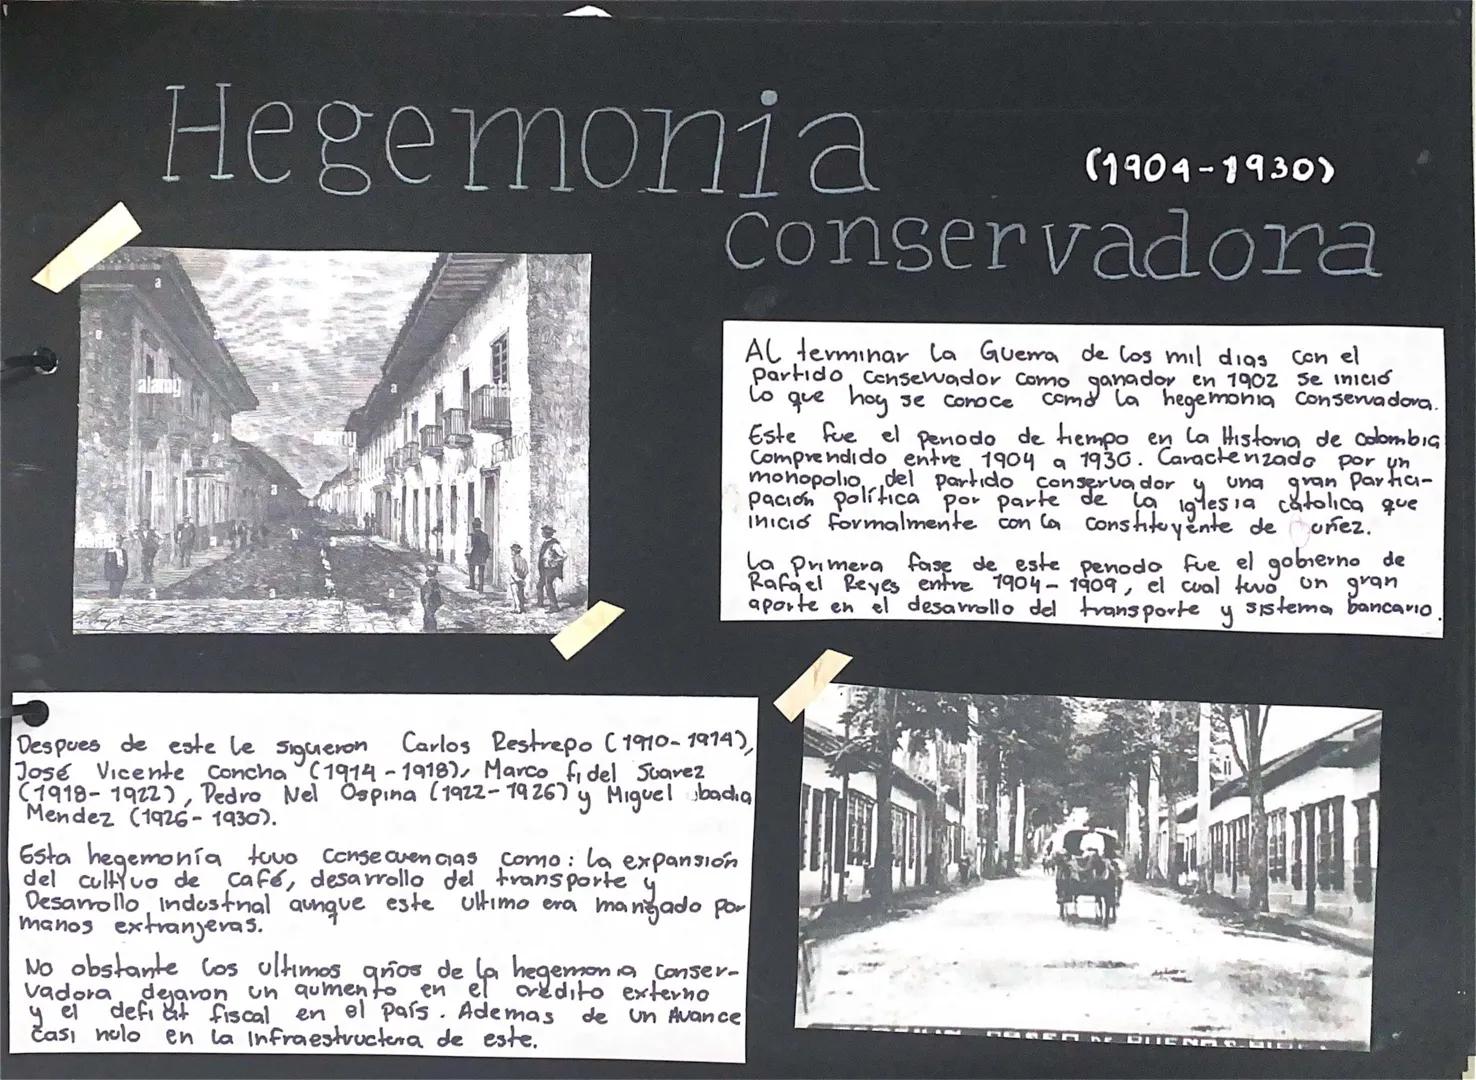 Hegemonia
(1904-1930)
Conservadora
alamy
Al terminar la Guerra de los mil dias con el
partido conservador como ganador en 1902 se inició
lo que hoy se conoce como la hegemonia conservadora.
Este fue el periodo de tiempo en la Historia de colombia
Comprendido entre 1904 a 1930. Caracterizado por un
monopolio del partido conservador y una gran partici-
pación política por parte de la iglesia catolica que
inició formalmente con la constituyente de uñez.
La primera fase de este periodo fue el gobierno de
Rafael Reyes entre 1904-1909, el cual tuvo un gran
aporte en el desarrollo del transporte y sistema bancario.
Despues de este le siguieron Carlos Restrepo (1910-1914),
José Vicente Concha (1914-1918), Marco fidel Suarez
(1918-1922), Pedro Nel Ospina (1922-1926) y Miguel badia
Mendez (1926-1930).
Esta hegemonía tuvo consecuencias como: la expansión
del cultivo de café, desarrollo del transporte y
Desarrollo industrial aunque este ultimo era manejado por
manos extranjeras.
No obstante los ultimos años de la hegemonia conser-
vadora dejaron un aumento en el crédito externo
y el deficit fiscal en el país. Ademas de un Avance
casi nulo en la infraestructura de este.
PASEO DE BUENOS